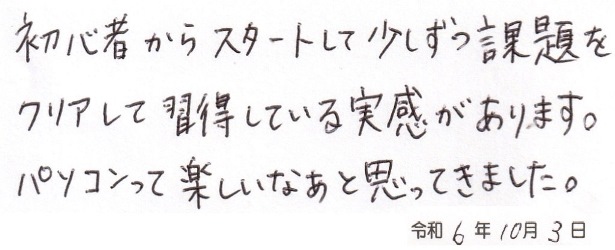 初心者からスタートして少しずつ課題を
クリアして習得している実感があります。
パソコンって楽しいなあと思ってきました。
令和6年10月3日